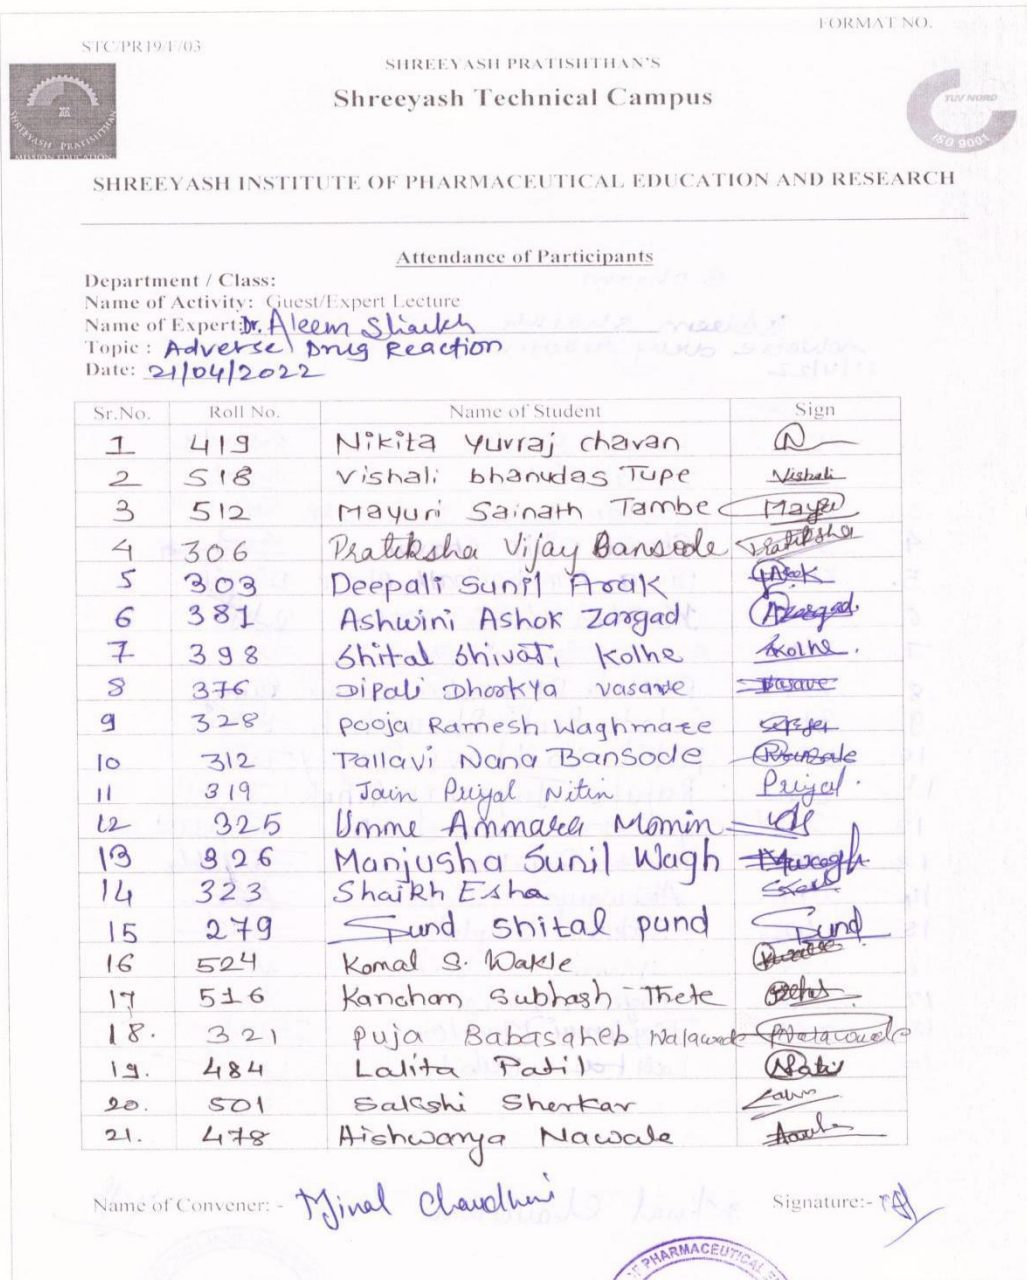 FORMAT NO.
STC/PR19/F/03
SHREEYASH PRATISHTHAN'S
Shreeyash Technical Campus
SHREEYASH PRATISHTHAN
MISSION EDUCATION
TUV NORD
ISO 9001
SHREEYASH INSTITUTE OF PHARMACEUTICAL EDUCATION AND RESEARCH
Attendance of Participants
Department / Class:
Name of Activity: Guest/Expert Lecture
Name of Expert: Dr. Aleem Shaikh
Topic : Adverse Drug Reaction
Date: 21/04/2022
Sr.No. Roll No. Name of Student Sign
1 419 Nikita Yuvraj chavan
2 518 Vishali bhanudas Tupe Vishali
3 512 Mayuri Sainath Tambe Mayuri
4 306 Pratiksha Vijay Bansode Pratiksha
5 303 Deepali Sunil Arak
6 381 Ashwini Ashok Zargad Azargad.
7 398 Shital Shivaji Kolhe Skolhe.
8 376 Dipali Dhorkya vasave Vasave
9 328 Pooja Ramesh Waghmare
10 312 Pallavi Nana Bansode
11 319 Jain Priyal Nitin Priyal.
12 325 Umme Ammara Momin
13 326 Manjusha Sunil Wagh Mwagh
14 323 Shaikh Esha
15 279 Fund Shital pund Fund
16 524 Komal S. Wakle
17 516 Kanchan Subhash Thete
18. 321 Puja Babasaheb Nalawade PNalawade
19. 484 Lalita Patil
20. 501 Sakshi Sherkar
21. 478 Aishwarya Nawale
Name of Convener: - Minal Chaudhari Signature:-
OF PHARMACEUTICAL